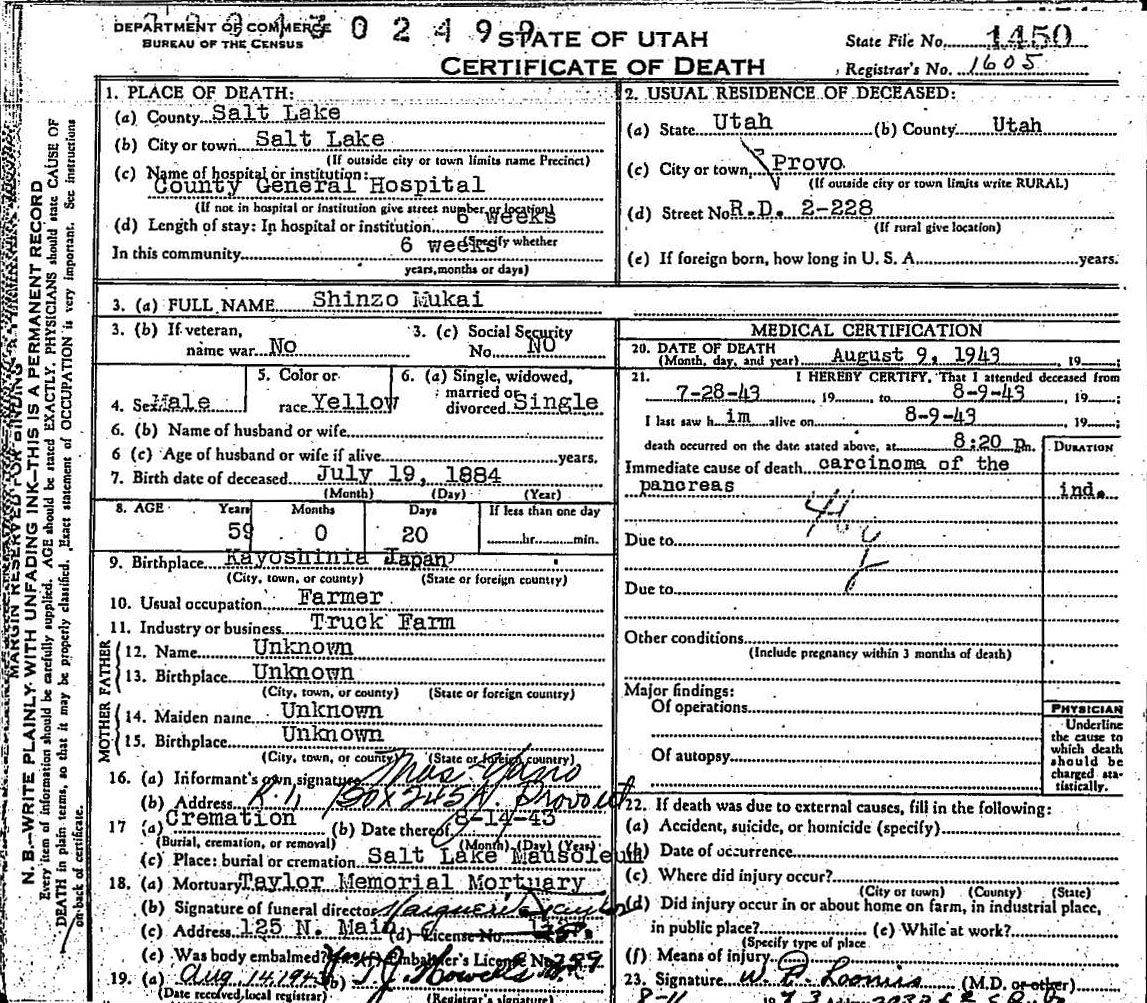 DEPARTMENT OF COMMERCE
BUREAU OF THE CENSUS
STATE OF UTAH
CERTIFICATE OF DEATH
State File No. 1450
Registrar's No. 1605
MARGIN RESERVED FOR BINDING
N. B.—WRITE PLAINLY WITH UNFADING INK—THIS IS A PERMANENT RECORD
Every item of information should be carefully supplied. AGE should be stated EXACTLY. PHYSICIANS should state CAUSE OF
DEATH in plain terms, so that it may be properly classified. Exact statement of OCCUPATION is very important. See instructions
on back of certificate.
1. PLACE OF DEATH:
(a) County Salt Lake
(b) City or town Salt Lake
(If outside city or town limits name Precinct)
(c) Name of hospital or institution:
County General Hospital
(If not in hospital or institution give street number or location)
(d) Length of stay: In hospital or institution 6 weeks
(Specify whether
In this community 6 weeks
years, months or days)
2. USUAL RESIDENCE OF DECEASED:
(a) State Utah (b) County Utah
(c) City or town Provo
(If outside city or town limits write RURAL)
(d) Street No. R.D. 2-228
(If rural give location)
(e) If foreign born, how long in U. S. A. years.
3. (a) FULL NAME Shinzo Mukai
3. (b) If veteran, name war No
3. (c) Social Security No. No
4. Sex Male
5. Color or race Yellow
6. (a) Single, widowed, married or divorced Single
6. (b) Name of husband or wife
6 (c) Age of husband or wife if alive years.
7. Birth date of deceased July 19, 1884
(Month) (Day) (Year)
8. AGE Years Months Days If less than one day
59 0 20 hr. min.
9. Birthplace Kayoshinia Japan
(City, town, or county) (State or foreign country)
10. Usual occupation Farmer
11. Industry or business Truck Farm
FATHER
12. Name Unknown
13. Birthplace Unknown
(City, town, or county) (State or foreign country)
MOTHER
14. Maiden name Unknown
15. Birthplace Unknown
(City, town, or county) (State or foreign country)
16. (a) Informant's own signature Mas Yano
(b) Address R 1, Box 245A. Provo ut
17 (a) Cremation (b) Date thereof 8-14-43
(Burial, cremation, or removal) (Month) (Day) (Year)
(c) Place: burial or cremation Salt Lake Mausoleum
18. (a) Mortuary Taylor Memorial Mortuary
(b) Signature of funeral director Marguerite Taylor
(c) Address 125 N. Main (d) License No.
(e) Was body embalmed? (f) Embalmer's License No.
19. (a) Aug 14, 1943 (b)
(Date received local registrar) (Registrar's signature)
MEDICAL CERTIFICATION
20. DATE OF DEATH
(Month, day, and year) August 9, 1943 19
21. I HEREBY CERTIFY, That I attended deceased from
7-28-43, 19 to 8-9-43, 19 ;
I last saw him alive on 8-9-43, 19 ;
death occurred on the date stated above, at 8:20 p.m.
DURATION
Immediate cause of death carcinoma of the
pancreas ind.
Due to
Due to
Other conditions
(Include pregnancy within 3 months of death)
Major findings:
Of operations
Of autopsy
PHYSICIAN
Underline
the cause to
which death
should be
charged sta-
tistically.
22. If death was due to external causes, fill in the following:
(a) Accident, suicide, or homicide (specify)
(b) Date of occurrence
(c) Where did injury occur?
(City or town) (County) (State)
(d) Did injury occur in or about home on farm, in industrial place,
in public place? (e) While at work?
(Specify type of place
(f) Means of injury
23. Signature W. R. Loomis (M.D. or other)